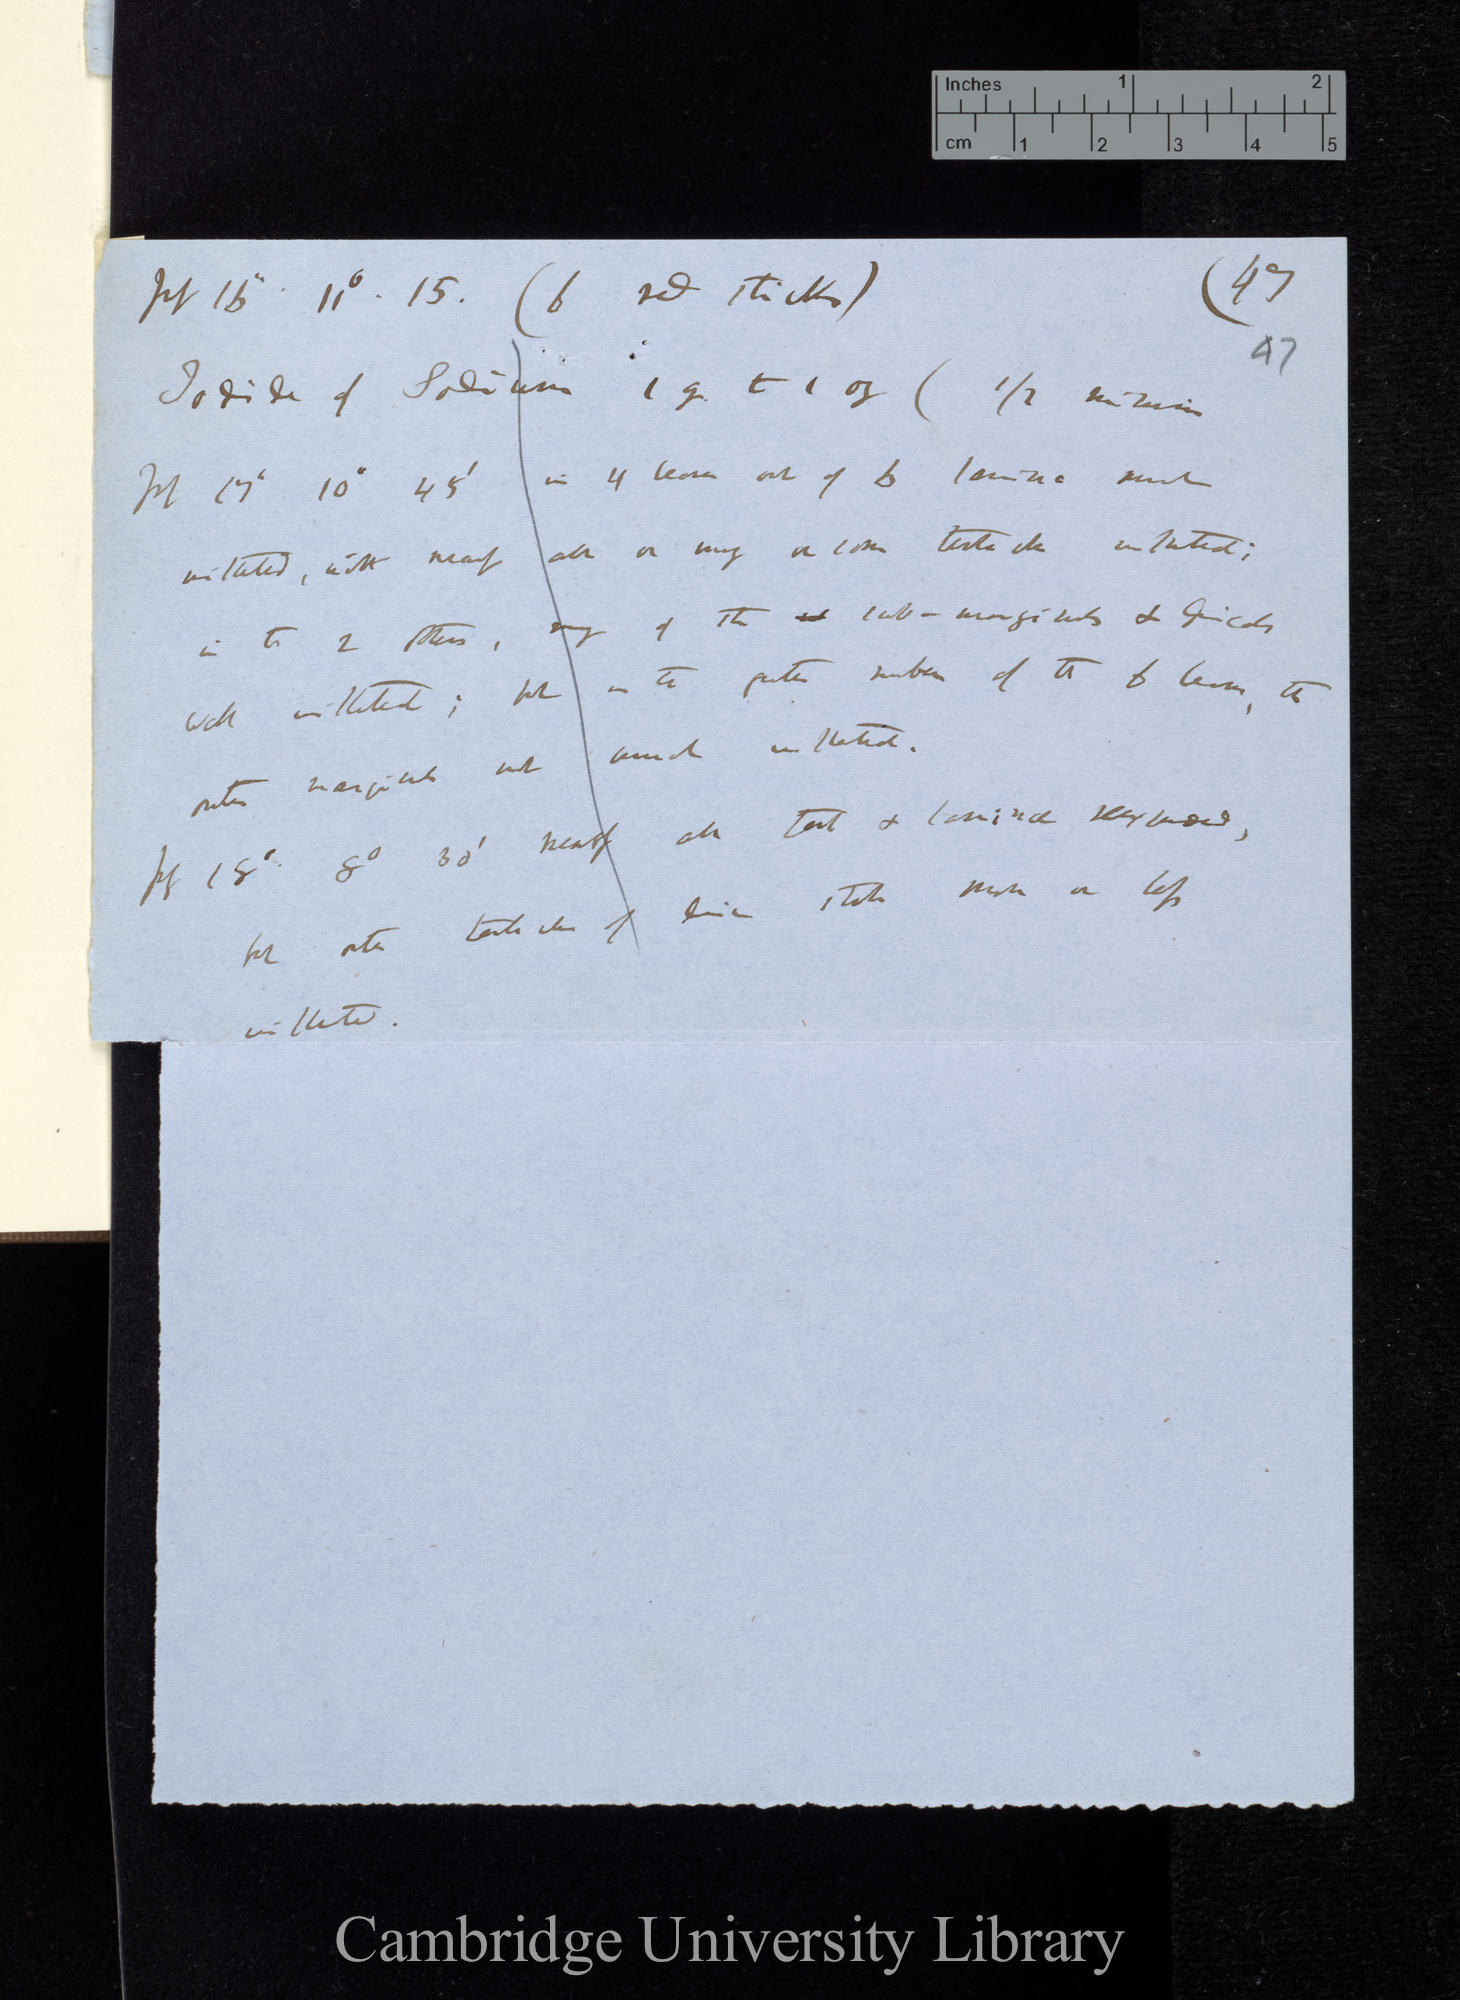 Inches 1 2
cm 1 2 3 4 5
16° 11° . 15. (6 red sticks) (47
47
Iodide of Sodium 1 gr. to 1 oz ( 1/2 minim
17° 10° 45' in 4 leaves out of 6 lamina much
inflected, with nearly all or many or some tentacles inflected;
in the 2 others, many of the sub-marginals & discals
well inflected; but in the greater number of the 6 leaves, the
outer marginals not much inflected.
18° 8° 30' nearly all tent & laminæ reexpanded,
but outer tentacles of still more or less
inflected.
Cambridge University Library